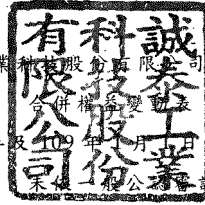 誠泰工業
科技股份
有限公司
業科技股份有限公司
合併權益變動表
及 109 年 1 月 1 日
一般公